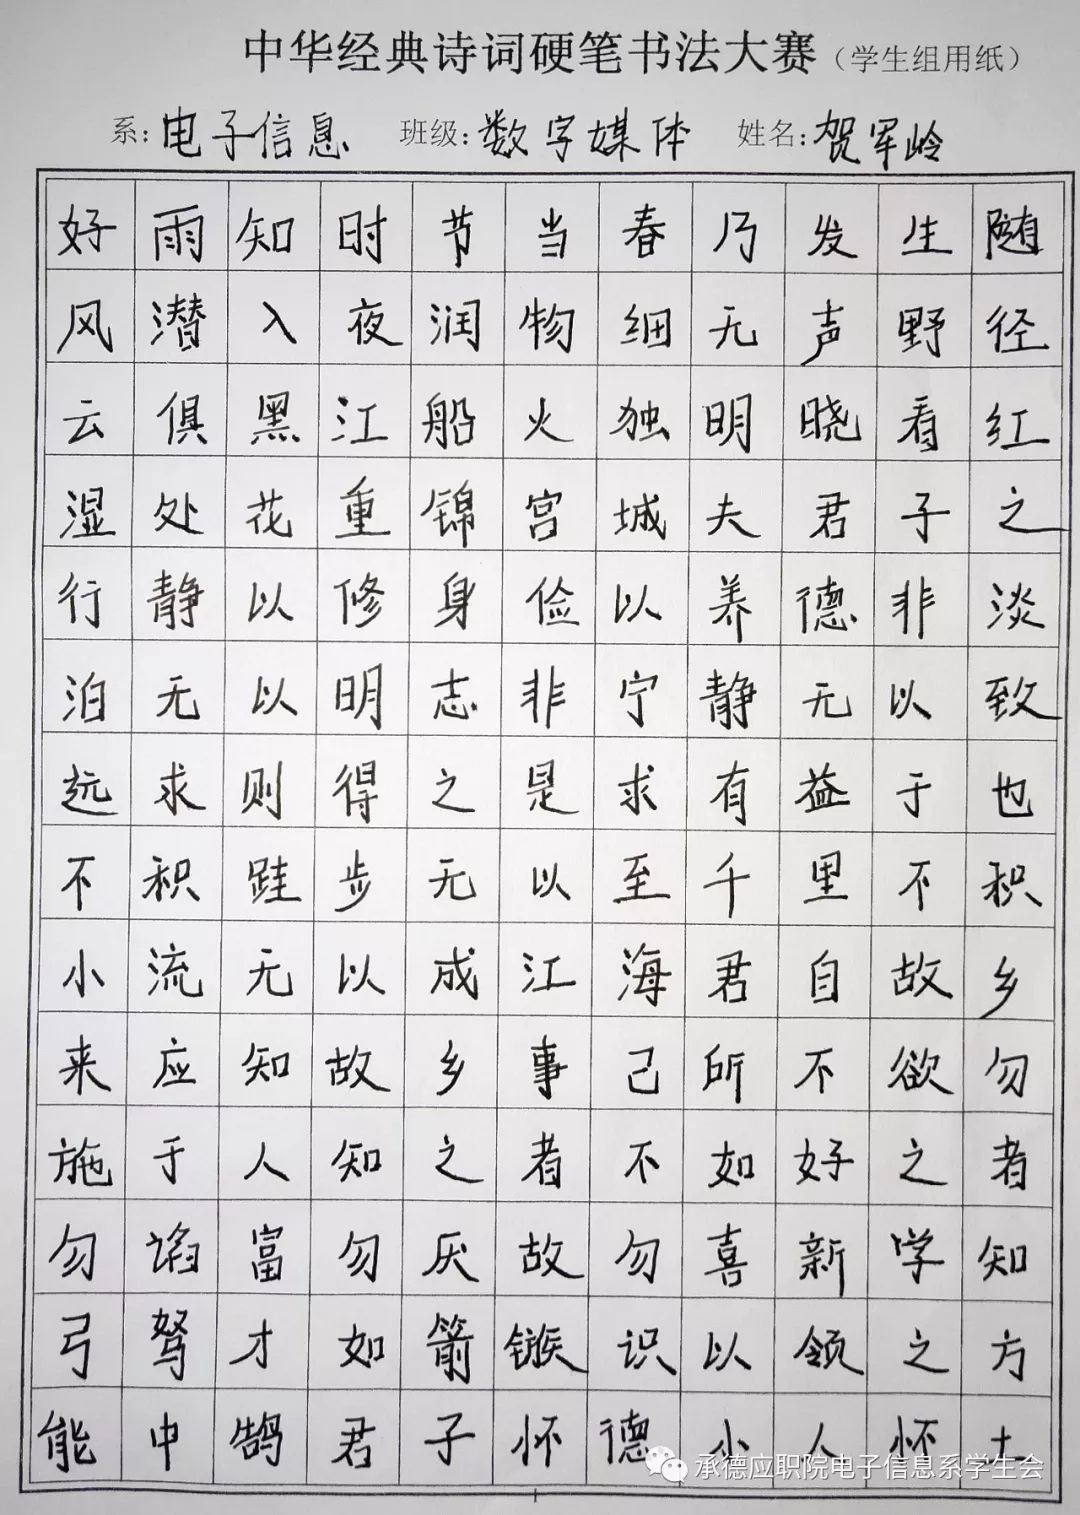 中华经典诗词硬笔书法大赛（学生组用纸）
系：电子信息 班级：数字媒体 姓名：贺军岭
好雨知时节当春乃发生随
风潜入夜润物细无声野径
云俱黑江船火独明晓看红
湿处花重锦宫城夫君子之
行静以修身俭以养德非淡
泊无以明志非宁静无以致
远求则得之是求有益于也
不积跬步无以至千里不积
小流无以成江海君自故乡
来应知故乡事己所不欲勿
施于人知之者不如好之者
勿谄富勿厌故勿喜新学知
弓驽才如箭镞识以领之方
能中鹄君子怀德小人怀土
承德应职院电子信息系学生会